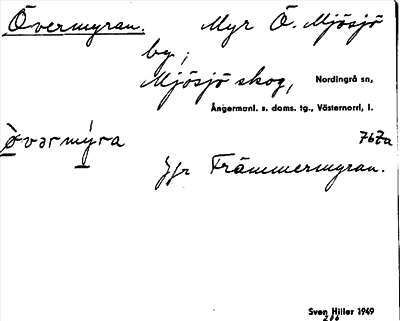 Övermyran. Myr Ö. Mjösjö
by;
Mjösjö skog, Nordingrå sn,
Ångermanl. s. doms. tg., Västernorrl. l.
òvərmýra 767a
Jfr Främmermyran.
Sven Hiller 1949